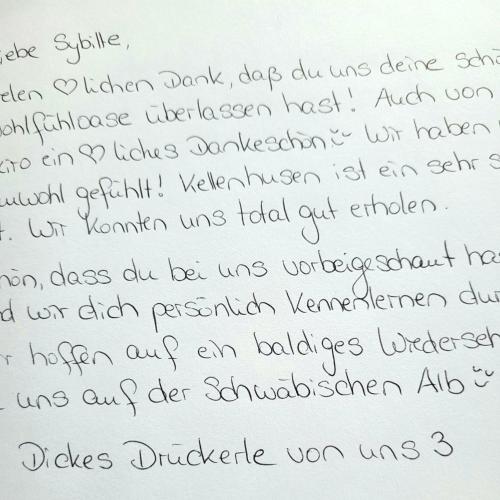 iebe Sybille,
elen ♡lichen Dank, daß du uns deine Schö
ohlfühloase überlassen hast! Auch von
kiro ein ♡liches Dankeschön Wir haben
uwohl gefühlt! Kellenhusen ist ein sehr s
t. Wir konnten uns total gut erholen.
hön, dass du bei uns vorbeigeschaut ha
d wir dich persönlich kennenlernen dur
r hoffen auf ein baldiges Wiederseh
uns auf der Schwäbischen Alb
Dickes Drückerle von uns 3